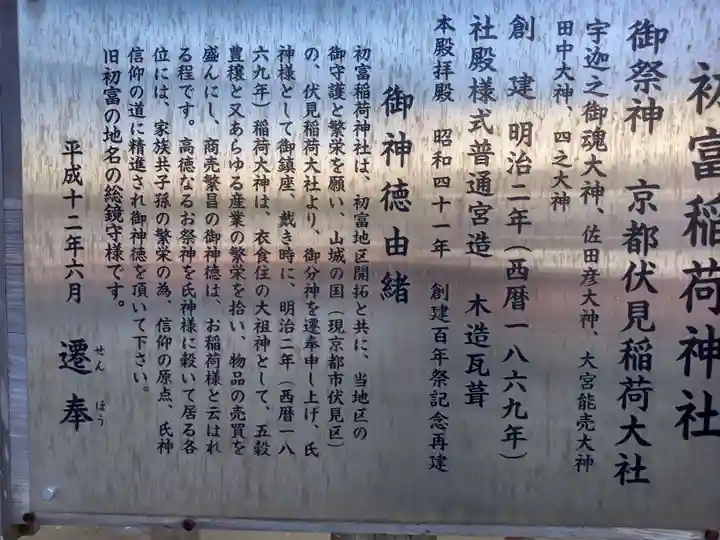 初富稲荷神社
御祭神　京都伏見稲荷大社
宇迦之御魂大神、佐田彦大神、大宮能売大神
田中大神、四之大神
創建　明治二年（西暦一八六九年）
社殿様式普通宮造　木造瓦葺
本殿拝殿　昭和四十一年　創建百年祭記念再建
御神徳由緒
初富稲荷神社は、初富地区開拓と共に、当地区の
御守護と繁栄を願い、山城の国（現京都市伏見区）
の、伏見稲荷大社より、御分神を遷奉申し上げ、氏
神様として御鎮座、戴き時に、明治二年（西暦一八
六九年）稲荷大神は、衣食住の大祖神として、五穀
豊穣と又あらゆる産業の繁栄を拾い、物品の売買を
盛んにし、商売繁昌の御神徳は、お稲荷様と云はれ
る程です。高徳なるお祭神を氏神様に穀いて居る各
位には、家族共子孫の繁栄の為、信仰の原点、氏神
信仰の道に精進され御神徳を頂いて下さい。
旧初富の地名の総鏡守様です。
平成十二年六月　遷奉
せん　ほう